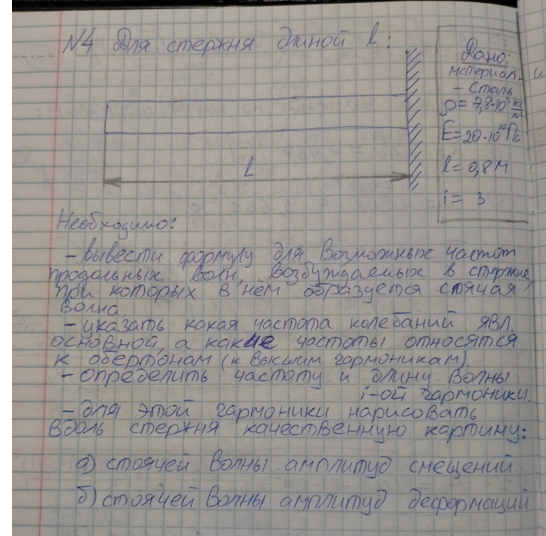 №4 Для стержня длиной l:
Дано:
материал
- сталь
ρ = 7,8·10³ кг/м³
E = 20·10¹⁰ Па
l = 0,8 м
i = 3
L
Необходимо:
- вывести формулу для возможных частот
продольных волн, возбуждаемых в стержне,
при которых в нем образуется стоячая
волна
- указать какая частота колебаний явл.
основной, а какие частоты относятся
к обертонам (к высшим гармоникам)
- определить частоту и длину волны
i-ой гармоники.
- для этой гармоники нарисовать
вдоль стержня качественную картину:
а) стоячей волны амплитуд смещений
б) стоячей волны амплитуд деформаций